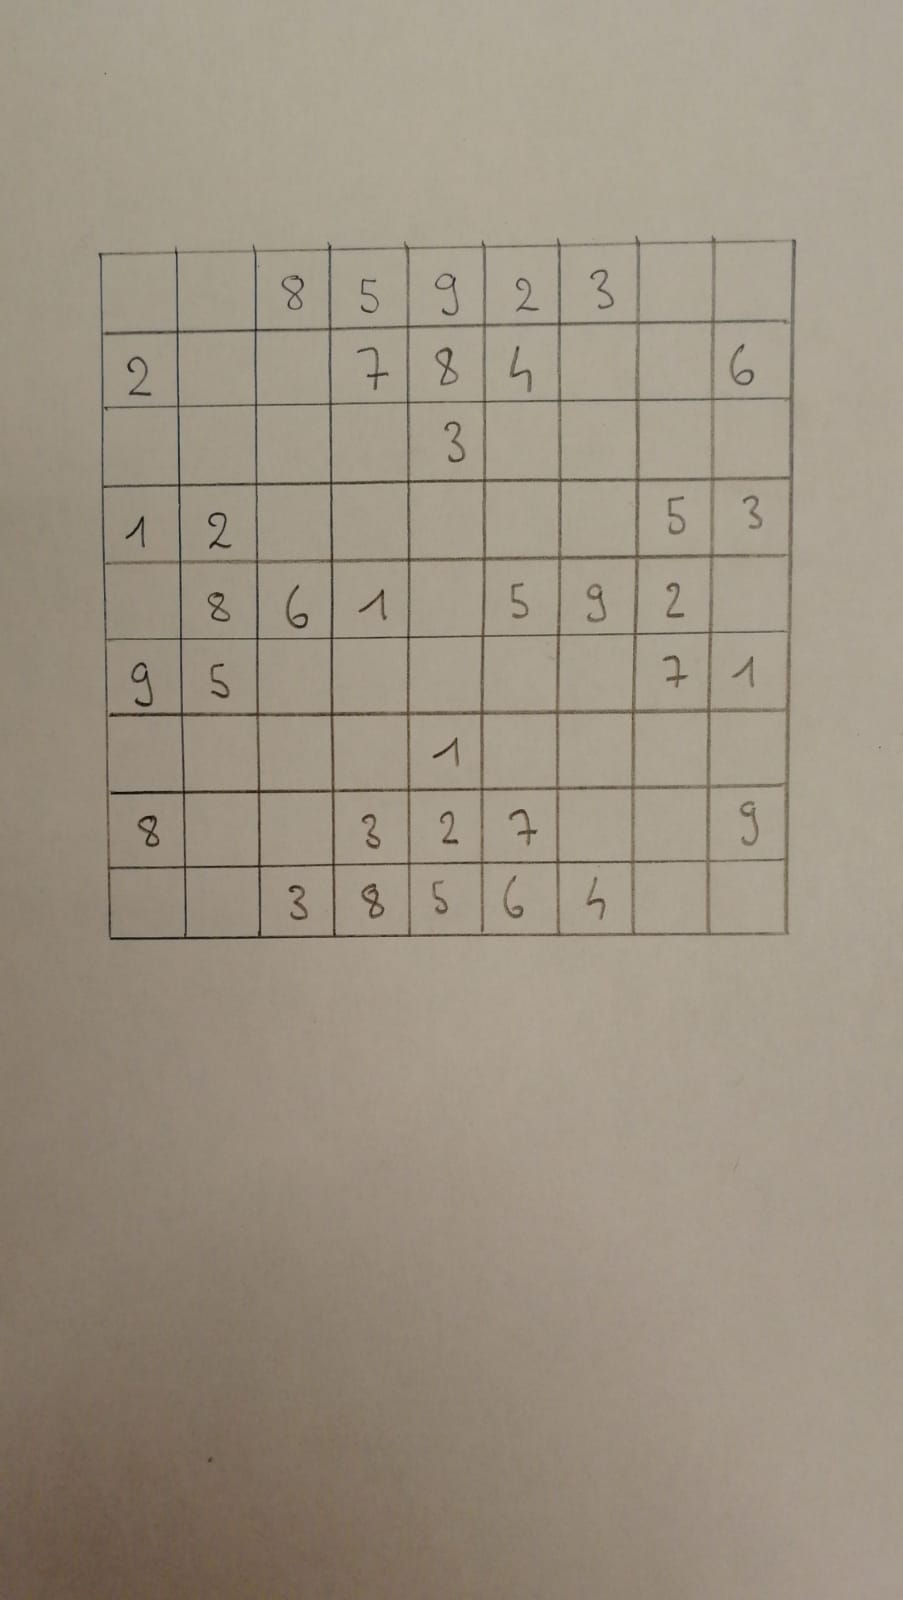 8 5 9 2 3
2 7 8 4 6
3
1 2 5 3
8 6 1 5 9 2
9 5 7 1
1
8 3 2 7 9
3 8 5 6 4